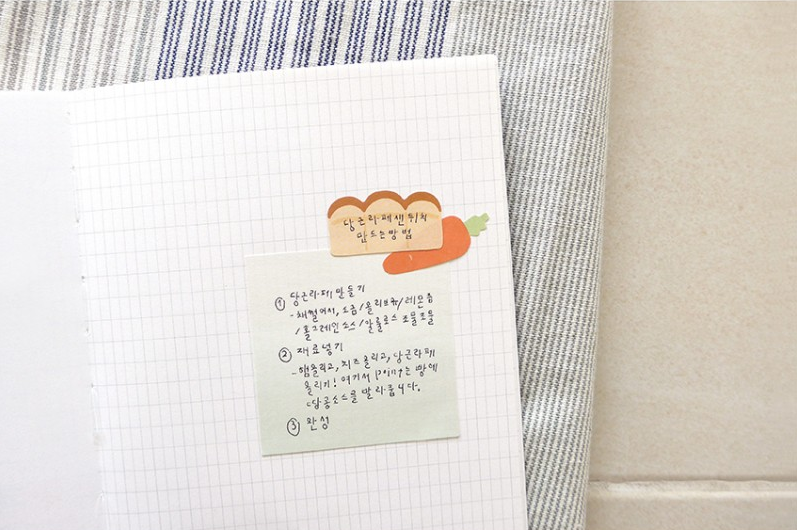 당근라페샌위치
만드는방법
① 당근라페만들기
- 채썰어서, 소금/올리브유/레몬즙
/홀그레인소스/알룰로스 조물조물
② 재료넣기
- 햄올리고, 치즈올리고, 당근라페
올리기! 여기서 poing는 빵에
땅콩소스를 발라줍니다.
③ 완성